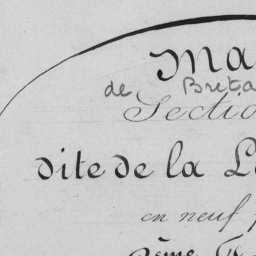 Ma
de Breta
Sectio
dite de la L
en neuf f
2ème F